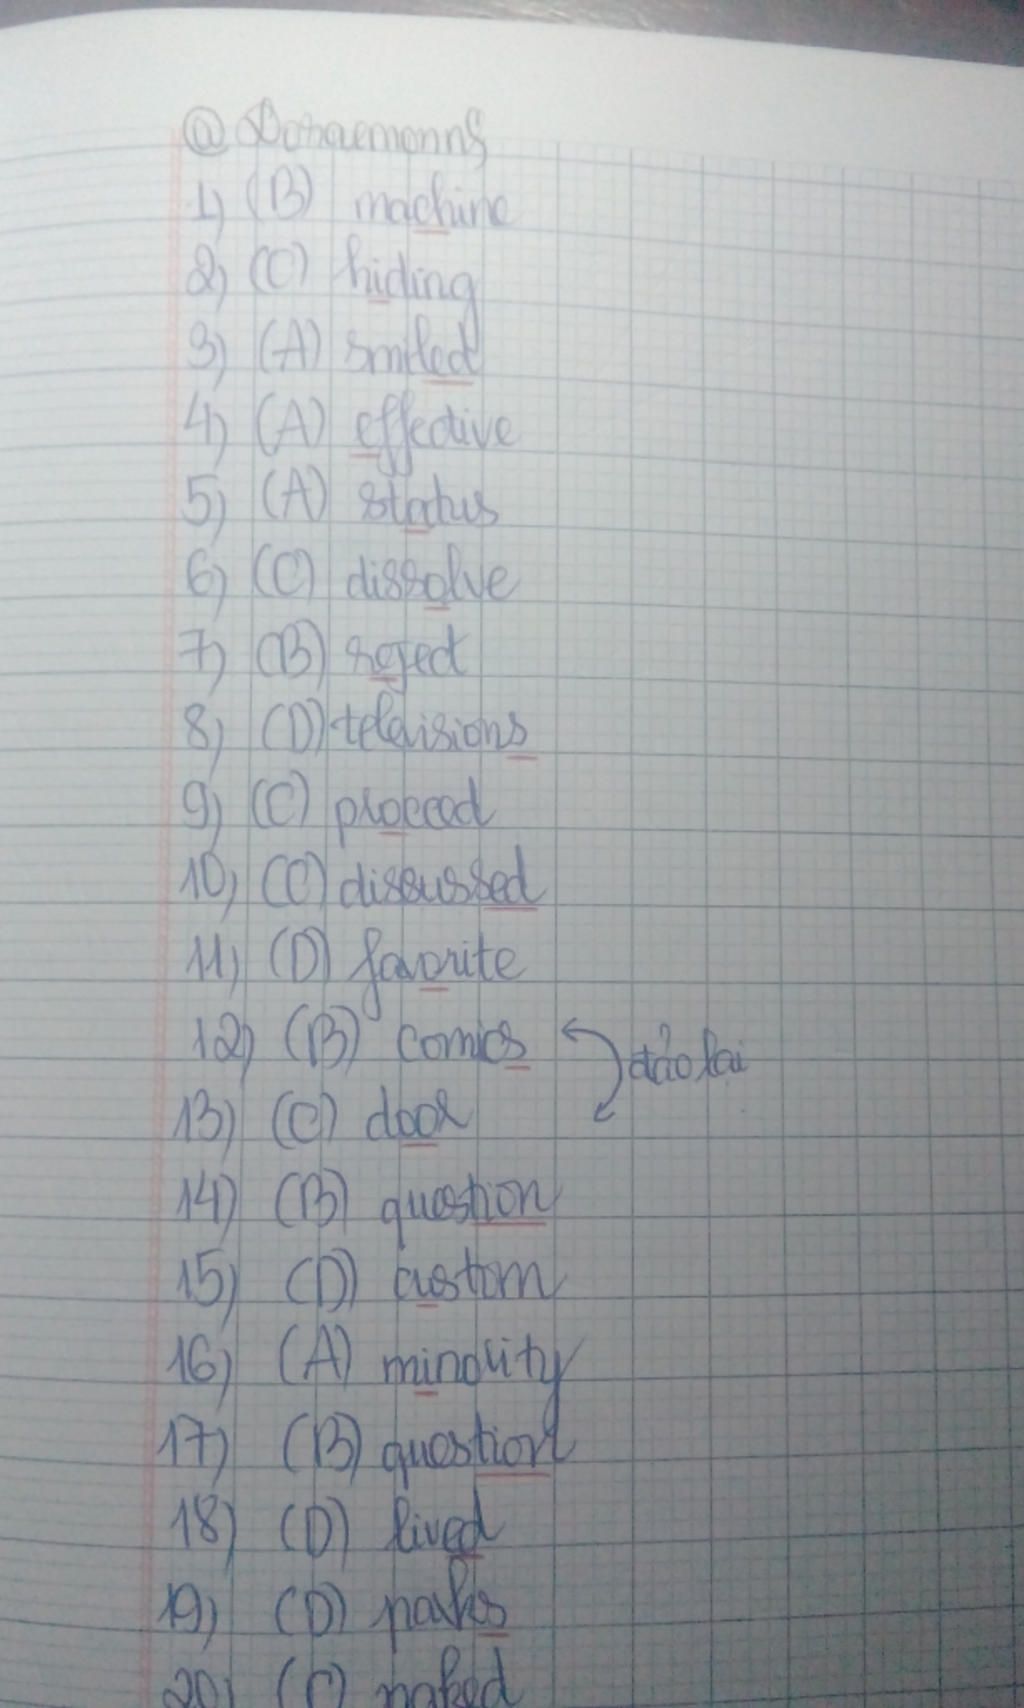 1) (B) machine
2) (C) hiding
3) (A) smiled
4) (A) effective
5) (A) status
6) (C) dissolve
7) (B) reject
8) (D) televisions
9) (C) proceed
10) (C) discussed
11) (D) favorite
12) (B) comics
đảo lại
13) (C) door
14) (B) question
15) (D) custom
16) (A) minority
17) (B) question
18) (D) lived
19) (D) parks
20) (C) naked